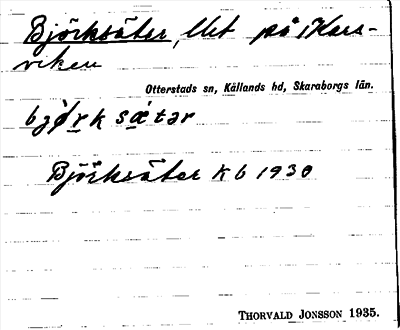 Björksäter, lht på Kars-
viken
Otterstads sn, Kållands hd, Skaraborgs län.
bjø̀rksæ̀tər
Björksäter Kb 1930
THORVALD JONSSON 1935.